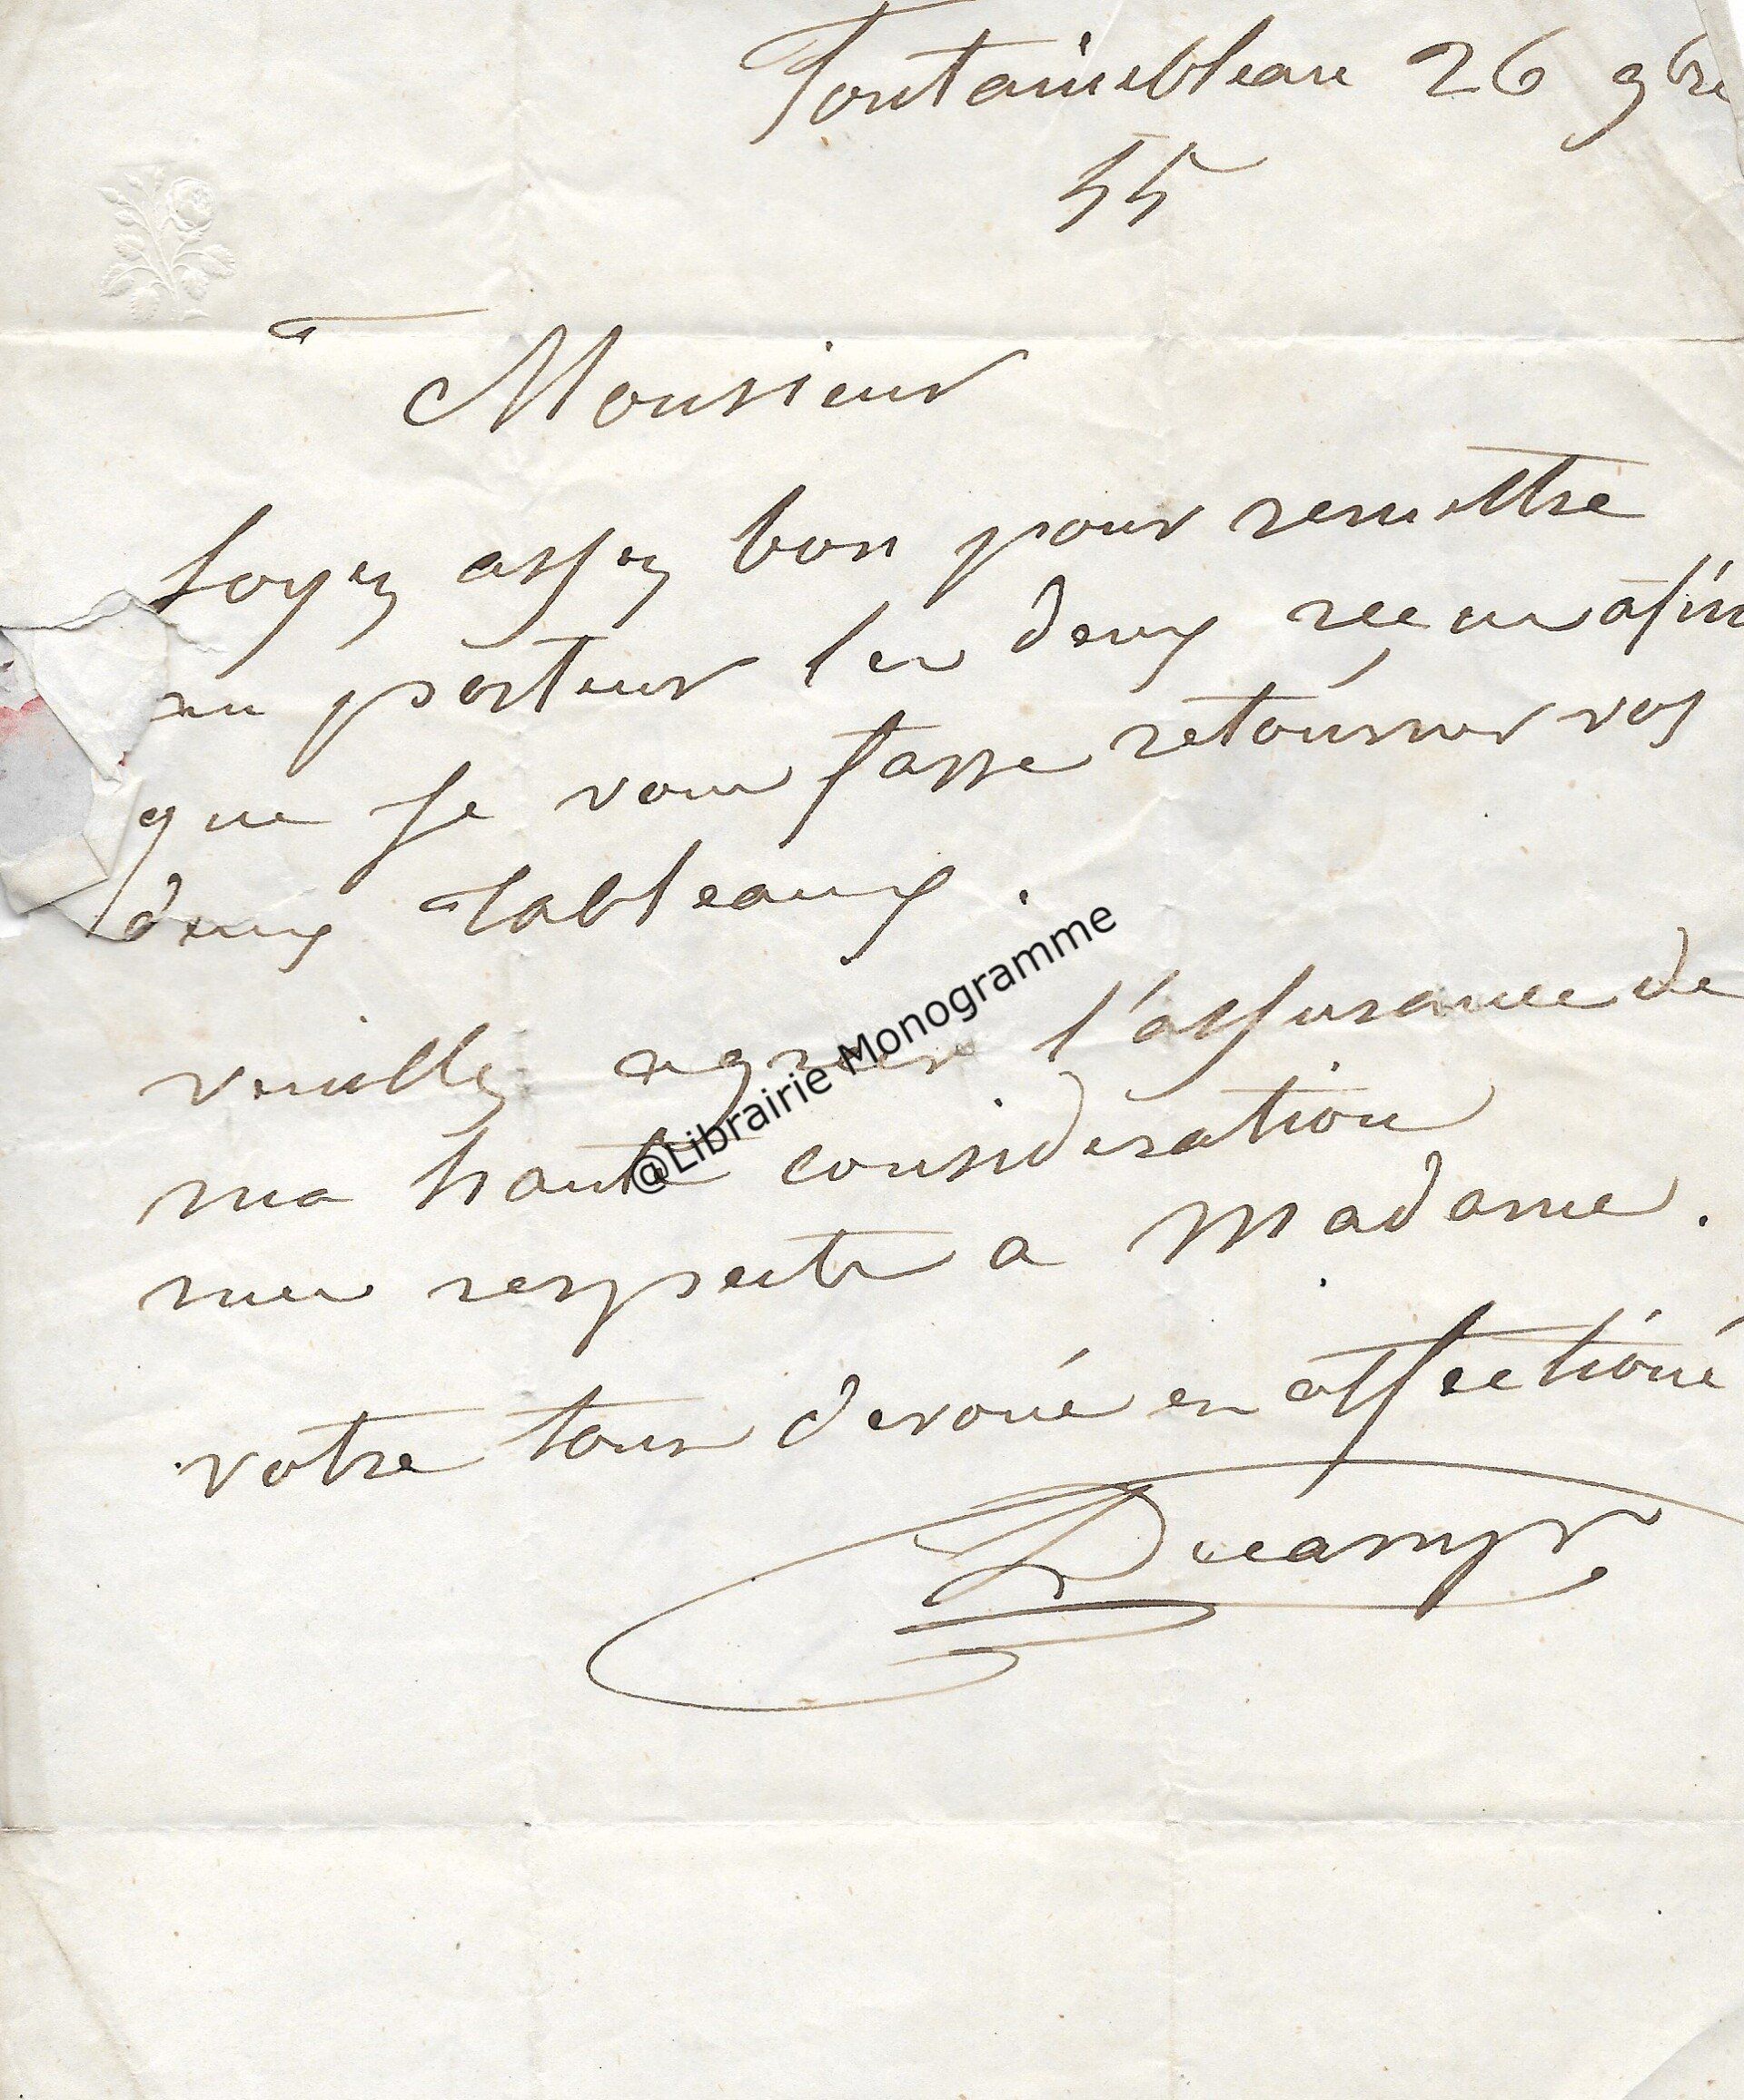 Fontainebleau 26 9bre
55
Monsieur
Soyez assez bon pour remettre
au porteur les deux recus afin
que je vous fasse retourner vos
deux tableaux.
veuillez agréer l'assurance de
ma haute consideration
mes respects a Madame.
votre tous devoué en affectioné
Decamps
@Librairie Monogramme